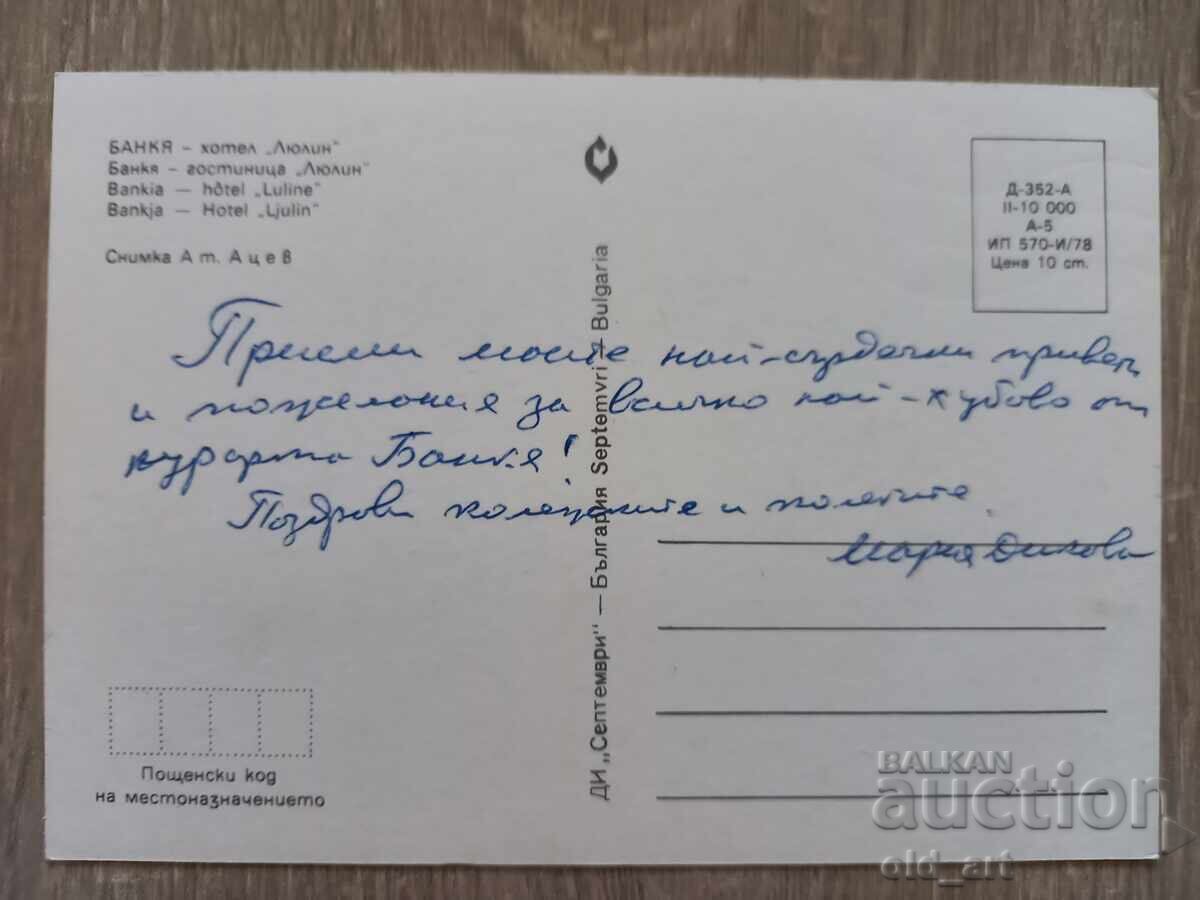 БАНКЯ – хотел „Люлин"
Банкя – гостиница „Люлин"
Bankia — hôtel „Luline"
Bankja — Hotel „Ljulin"
Снимка Ат. Ацев
Д-352-А
II-10 000
А-5
ИП 570-И/78
Цена 10 ст.
Приеми моите най-сърдечни привети
и пожелания за всичко най-хубаво от
курорта Банкя!
Поздрави колежките и колегите
Мария
ДИ „Септември" — България Septemvri — Bulgaria
Пощенски код
на местоназначението
BALKAN
auction
old_art